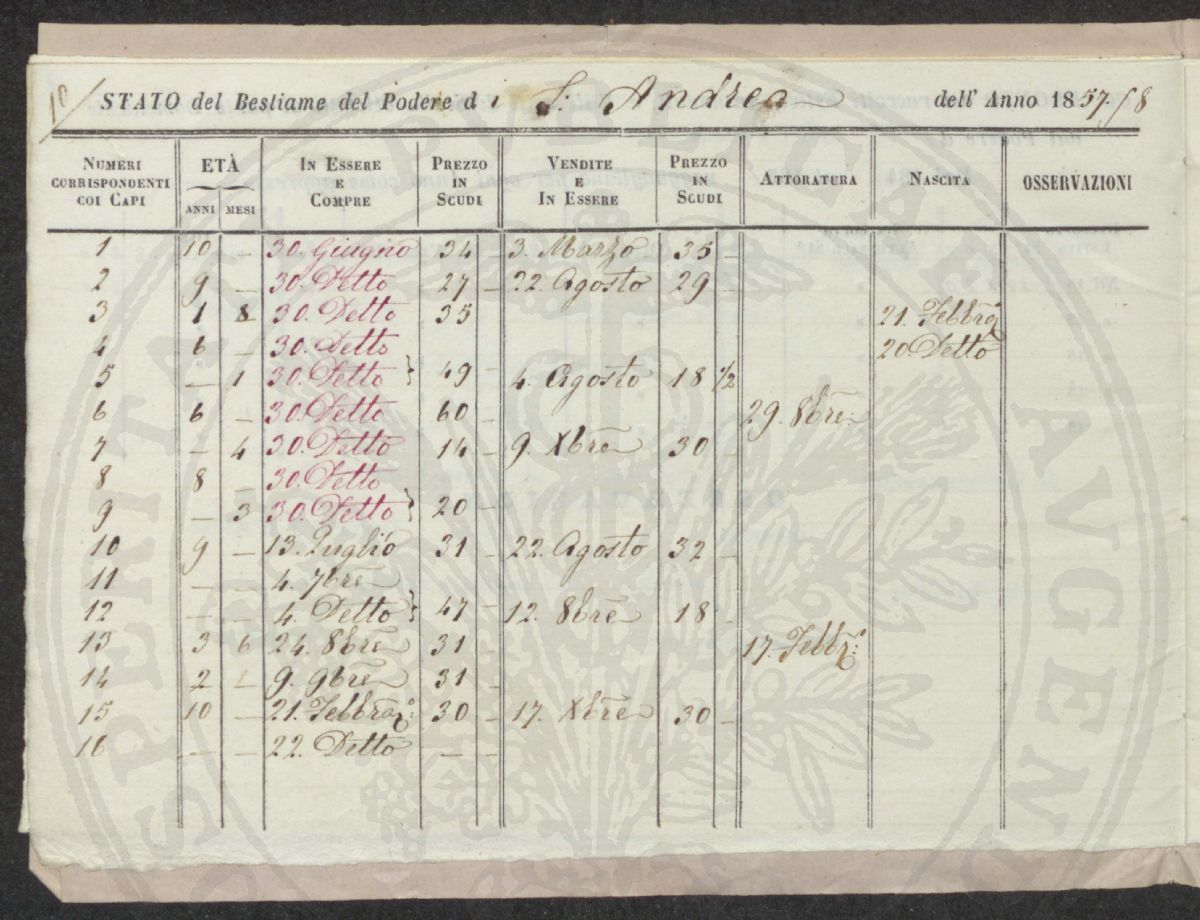 10/ STATO del Bestiame del Podere di S: Andrea dell' Anno 1857./58
NUMERI CORRISPONDENTI COI CAPI | ETÀ ANNI MESI | IN ESSERE E COMPRE | PREZZO IN SCUDI | VENDITE E IN ESSERE | PREZZO IN SCUDI | ATTORATURA | NASCITA | OSSERVAZIONI
1 10 – 30. Giugno 34 – 3. Marzo 35 –
2 9 – 30. Detto 27 – 22. Agosto 29
3 1 8 30. Detto 35 21. Febbraj
4 6 – 30. Detto 20 Detto
5 – 1 30. Detto } 49 – 4. Agosto 18 1/2
6 6 – 30. Detto 60 – 29. 8bre
7 – 4 30. Detto 14 – 9. Xbre 30 –
8 8 – 30. Detto
9 – 3 30. Detto } 20 –
10 9 – 13. Luglio 31 – 22. Agosto 32 –
11 – – 4. 7bre
12 – – 4. Detto } 47 – 12. 8bre 18 –
13 3 6 24. 8bre 31 – 17. Febbr:
14 2 1 9. 9bre 31 –
15 10 – 21. Febbraj: 30 – 17. Xbre 30 –
16 – – 22. Detto – –
SPERITAT PUBLICAE AUGEND